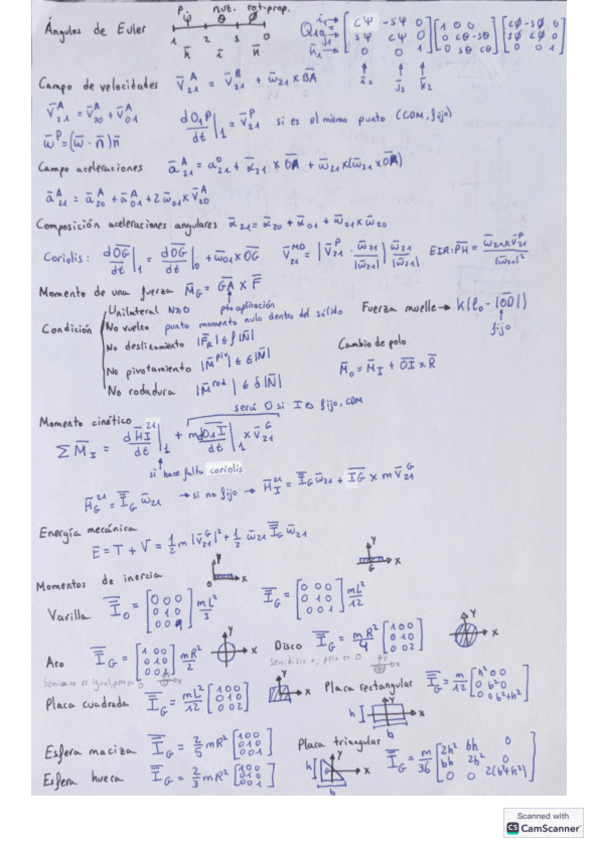 Ángulos de Euler
P. nut. rot-prop.
ψ θ φ
1 2 3 0
k̄ ī k̄
Q10 [cψ -sψ 0; sψ cψ 0; 0 0 1] [1 0 0; 0 cθ -sθ; 0 sθ cθ] [cφ -sφ 0; sφ cφ 0; 0 0 1]
ī₂ j̄₂ k̄₂
Campo de velocidades v̄ᴬ₂₁ = v̄ᴮ₂₁ + ω̄₂₁ × B̅A̅
v̄ᴬ₂₁ = v̄ᴬ₂₀ + v̄ᴬ₀₁ dO₁P/dt|₁ = v̄ᴾ₂₁ si es el mismo punto (CDM, fijo)
ω̄ᴾ = (ω̄ · n̄) n̄
Campo aceleraciones āᴬ₂₁ = a⁰₂₁ + ᾱ₂₁ × O̅A̅ + ω̄₂₁ × (ω̄₂₁ × O̅A̅)
āᴬ₂₁ = āᴬ₂₀ + āᴬ₀₁ + 2ω̄₀₁ × v̄ᴬ₂₀
Composición aceleraciones angulares ᾱ₂₁ = ᾱ₂₀ + ᾱ₀₁ + ω̄₀₁ × ω̄₂₀
Coriolis: dO̅G̅/dt|₁ = dO̅G̅/dt|₀ + ω̄₀₁ × O̅G̅ v̄ᴹᴰ₂₁ = |v̄ᴾ₂₁ · ω̄₂₁/|ω̄₂₁|| ω̄₂₁/|ω̄₂₁| EIR: P̅H̅ = ω̄₂₁ × v̄ᴾ₂₁/|ω̄₂₁|²
Momento de una fuerza M̄G = G̅A̅ × F̄
pto aplicación
Condición
Unilateral N≥0
No vuelco punto momento nulo dentro del sólido
No deslizamiento |F̄R| ≤ f |N̄|
No pivotamiento |M̄ᵖⁱᵛ| ≤ ε |N̄|
No rodadura |M̄ʳᵒᵈ| ≤ δ |N̄|
Fuerza muelle → k(l₀ - |O̅D̅|)
fijo
Cambio de polo
M̄o = M̄I + O̅I̅ × R̄
será 0 si I es fijo, CDM
Momento cinético
Σ M̄I = dH̄I²¹/dt|₁ + m dO̅₁I̅/dt|₁ × v̄ᴳ₂₁
si hace falta coriolis
H̄G²¹ = I̿G ω̄₂₁ → si no fijo → H̄I²¹ = I̿G ω̄₂₁ + I̅G̅ × m v̄ᴳ₂₁
Energía mecánica
E = T + V = 1/2 m |v̄ᴳ₂₁|² + 1/2 ω̄₂₁ I̿G ω̄₂₁
Momentos de inercia
Varilla I̿o = [0 0 0; 0 1 0; 0 0 1] mL²/3 I̿G = [0 0 0; 0 1 0; 0 0 1] mL²/12
Aro I̿G = [1 0 0; 0 1 0; 0 0 2] mR²/2 Disco I̿G = mR²/4 [1 0 0; 0 1 0; 0 0 2]
Placa cuadrada I̿G = mL²/12 [1 0 0; 0 1 0; 0 0 2] Placa rectangular I̿G = m/12 [h² 0 0; 0 b² 0; 0 0 b²+h²]
Esfera maciza I̿G = 2/5 mR² [1 0 0; 0 1 0; 0 0 1] Placa triangular I̿G = m/36 [2h² bh 0; bh 2b² 0; 0 0 2(b²+h²)]
Esfera hueca I̿G = 2/3 mR² [1 0 0; 0 1 0; 0 0 1]
Scanned with
CS CamScanner